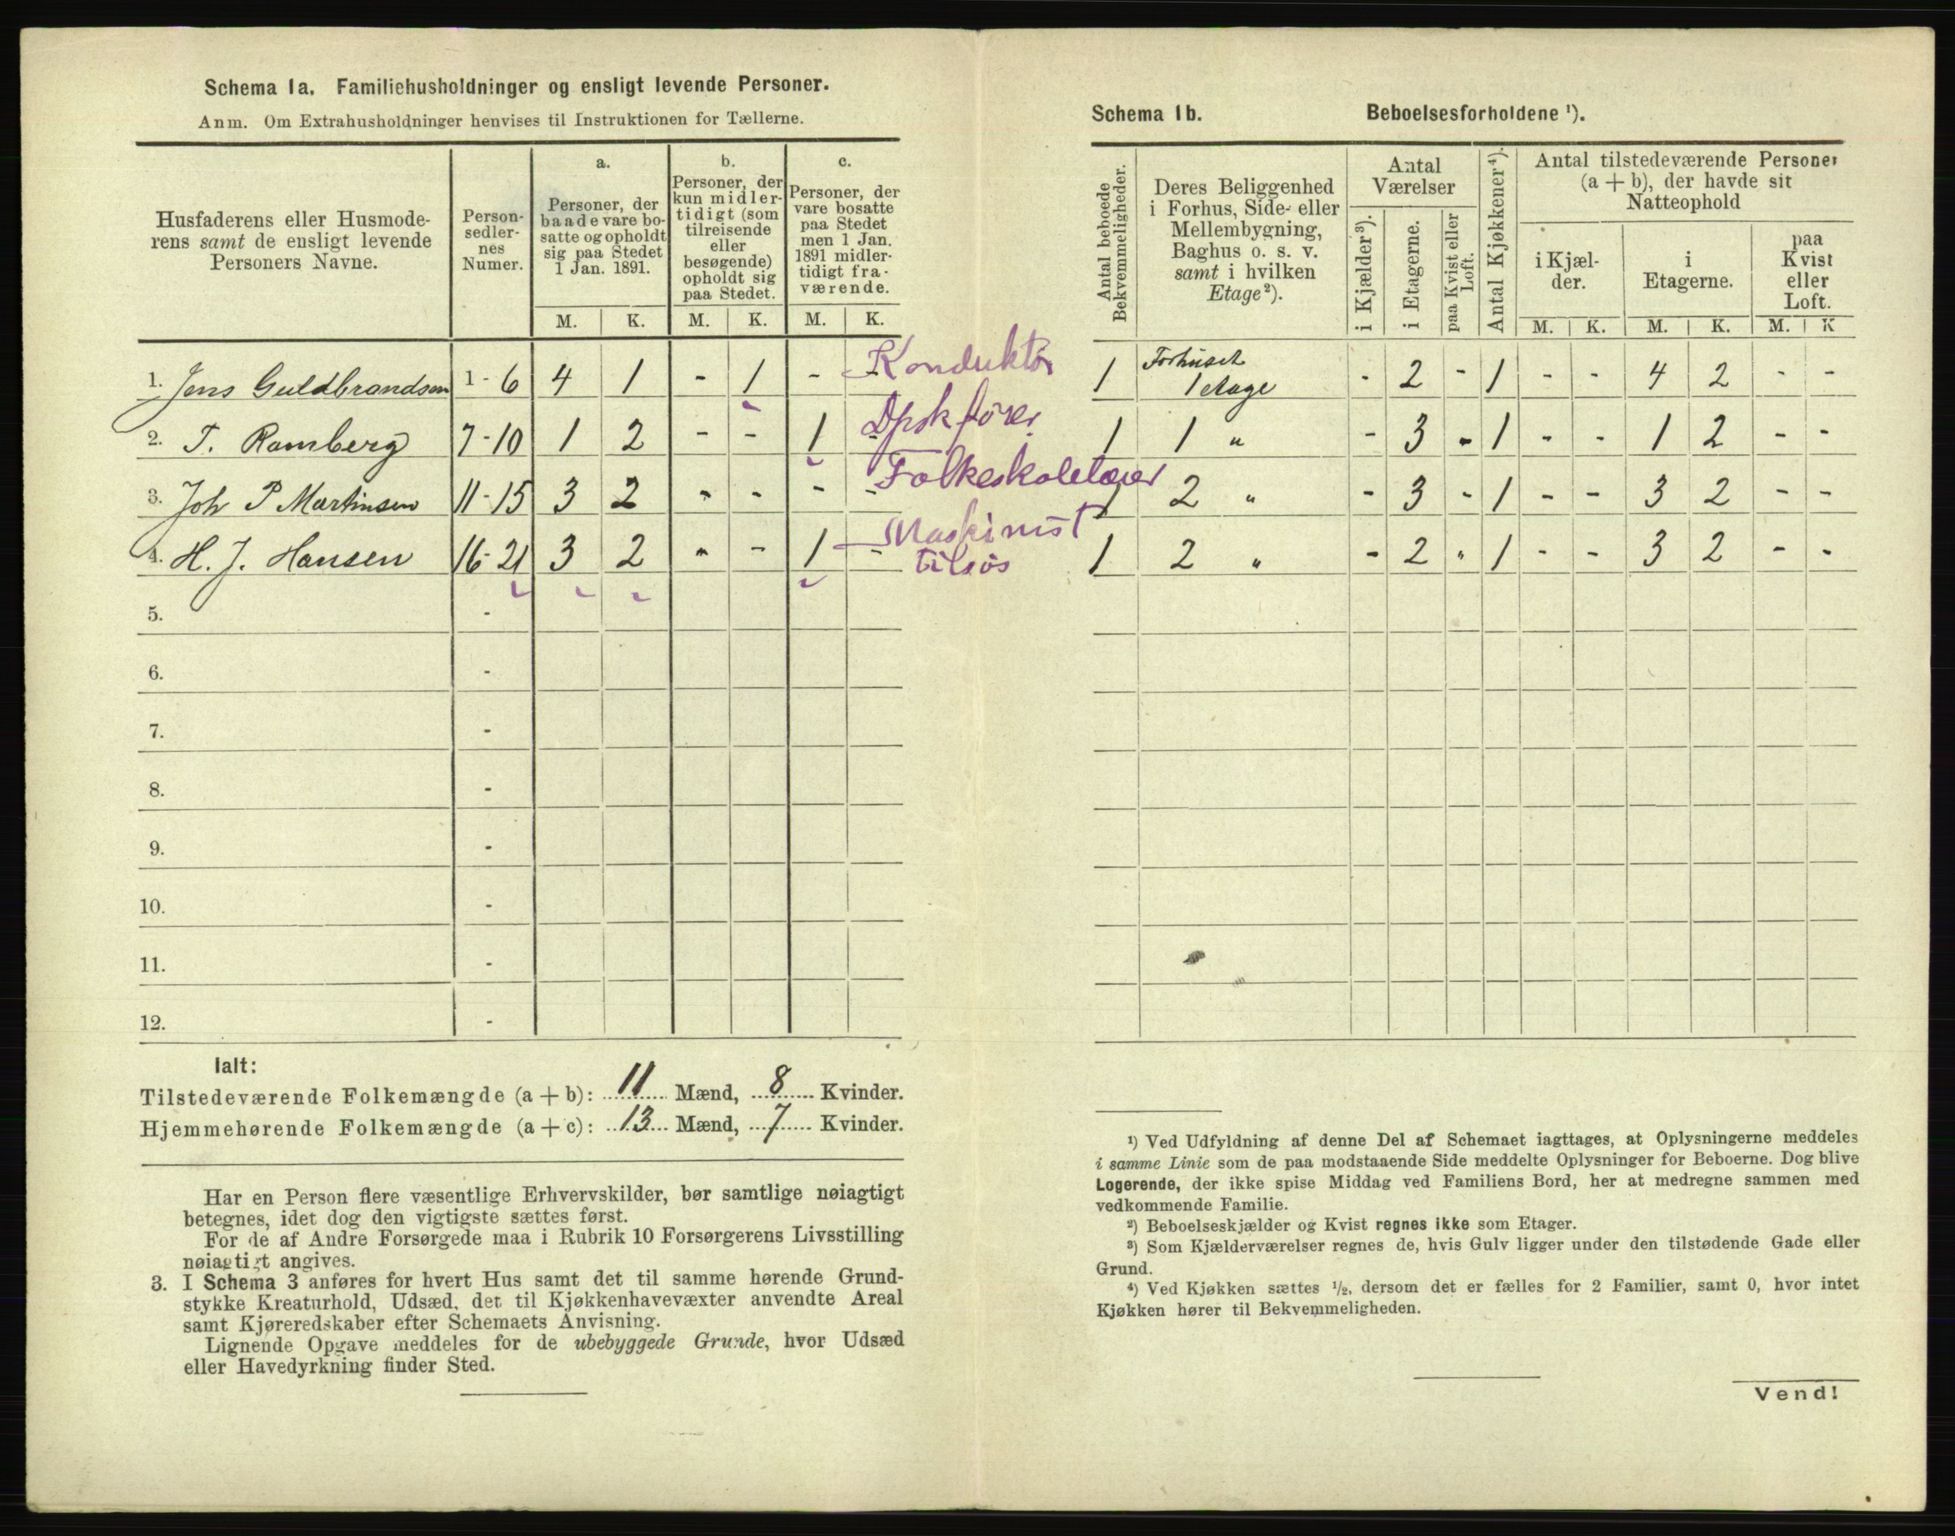 Schema 1a. Familiehusholdninger og ensligt levende Personer.
Anm. Om Extrahusholdninger henvises til Instruktionen for Tællerne.
Husfaderens eller Husmode-
rens samt de ensligt levende
Personers Navne.
Person-
sedler-
nes
Numer.
a.
Personer, der
baade vare bo-
satte og opholdt
sig paa Stedet
1 Jan. 1891.
M. K.
b.
Personer, der
kun midler-
tidigt (som
tilreisende
eller
besøgende)
opholdt sig
paa Stedet.
M. K.
c.
Personer, der
vare bosatte
paa Stedet
men 1 Jan.
1891 midler-
tidigt fra-
værende.
M. K.
1. Jens Guldbrandsen 1 - 6 4 1 - 1 - - Konduktør
2. T. Ramberg 7 - 10 1 2 - - 1 - Dpskfører
3. Joh P Martinsen 11 - 15 3 2 - - - - Folkeskolelærer
4. H. J. Hansen 16 - 21 3 2 - - 1 - Maskinist
tilsøs
5. -
6. -
7. -
8. -
9. -
10. -
11. -
12. -
Ialt:
Tilstedeværende Folkemængde (a + b): 11 Mænd, 8 Kvinder.
Hjemmehørende Folkemængde (a + c): 13 Mænd, 7 Kvinder.
Har en Person flere væsentlige Erhvervskilder, bør samtlige nøiagtigt
betegnes, idet dog den vigtigste sættes først.
For de af Andre Forsørgede maa i Rubrik 10 Forsørgerens Livsstilling
nøiagtigt angives.
3. I Schema 3 anføres for hvert Hus samt det til samme hørende Grund-
stykke Kreaturhold, Udsæd, det til Kjøkkenhavevæxter anvendte Areal
samt Kjøreredskaber efter Schemaets Anvisning.
Lignende Opgave meddeles for de ubebyggede Grunde, hvor Udsæd
eller Havedyrkning finder Sted.
Schema 1b. Beboelsesforholdene ¹).
Antal beboede
Bekvemmeligheder.
Deres Beliggenhed
i Forhus, Side- eller
Mellembygning,
Baghus o. s. v.
samt i hvilken
Etage²).
Antal
Værelser
i Kjælder³).
i Etagerne.
paa Kvist eller
Loft.
Antal Kjøkkener⁴).
Antal tilstedeværende Personer
(a + b), der havde sit
Natteophold
i Kjæl-
der.
M. K.
i
Etagerne.
M. K.
paa
Kvist
eller
Loft.
M. K
1 Forhuset
1 etage - 2 - 1 - - 4 2 - -
1 1 " - 3 - 1 - - 1 2 - -
1 2 " - 3 - 1 - - 3 2 - -
1 2 " - 2 " 1 - - 3 2 - -
¹) Ved Udfyldning af denne Del af Schemaet iagttages, at Oplysningerne meddeles
i samme Linie som de paa modstaaende Side meddelte Oplysninger for Beboerne. Dog blive
Logerende, der ikke spise Middag ved Familiens Bord, her at medregne sammen med
vedkommende Familie.
²) Beboelseskjælder og Kvist regnes ikke som Etager.
³) Som Kjælderværelser regnes de, hvis Gulv ligger under den tilstødende Gade eller
Grund.
⁴) Ved Kjøkken sættes ½, dersom det er fælles for 2 Familier, samt 0, hvor intet
Kjøkken hører til Bekvemmeligheden.
Vend!